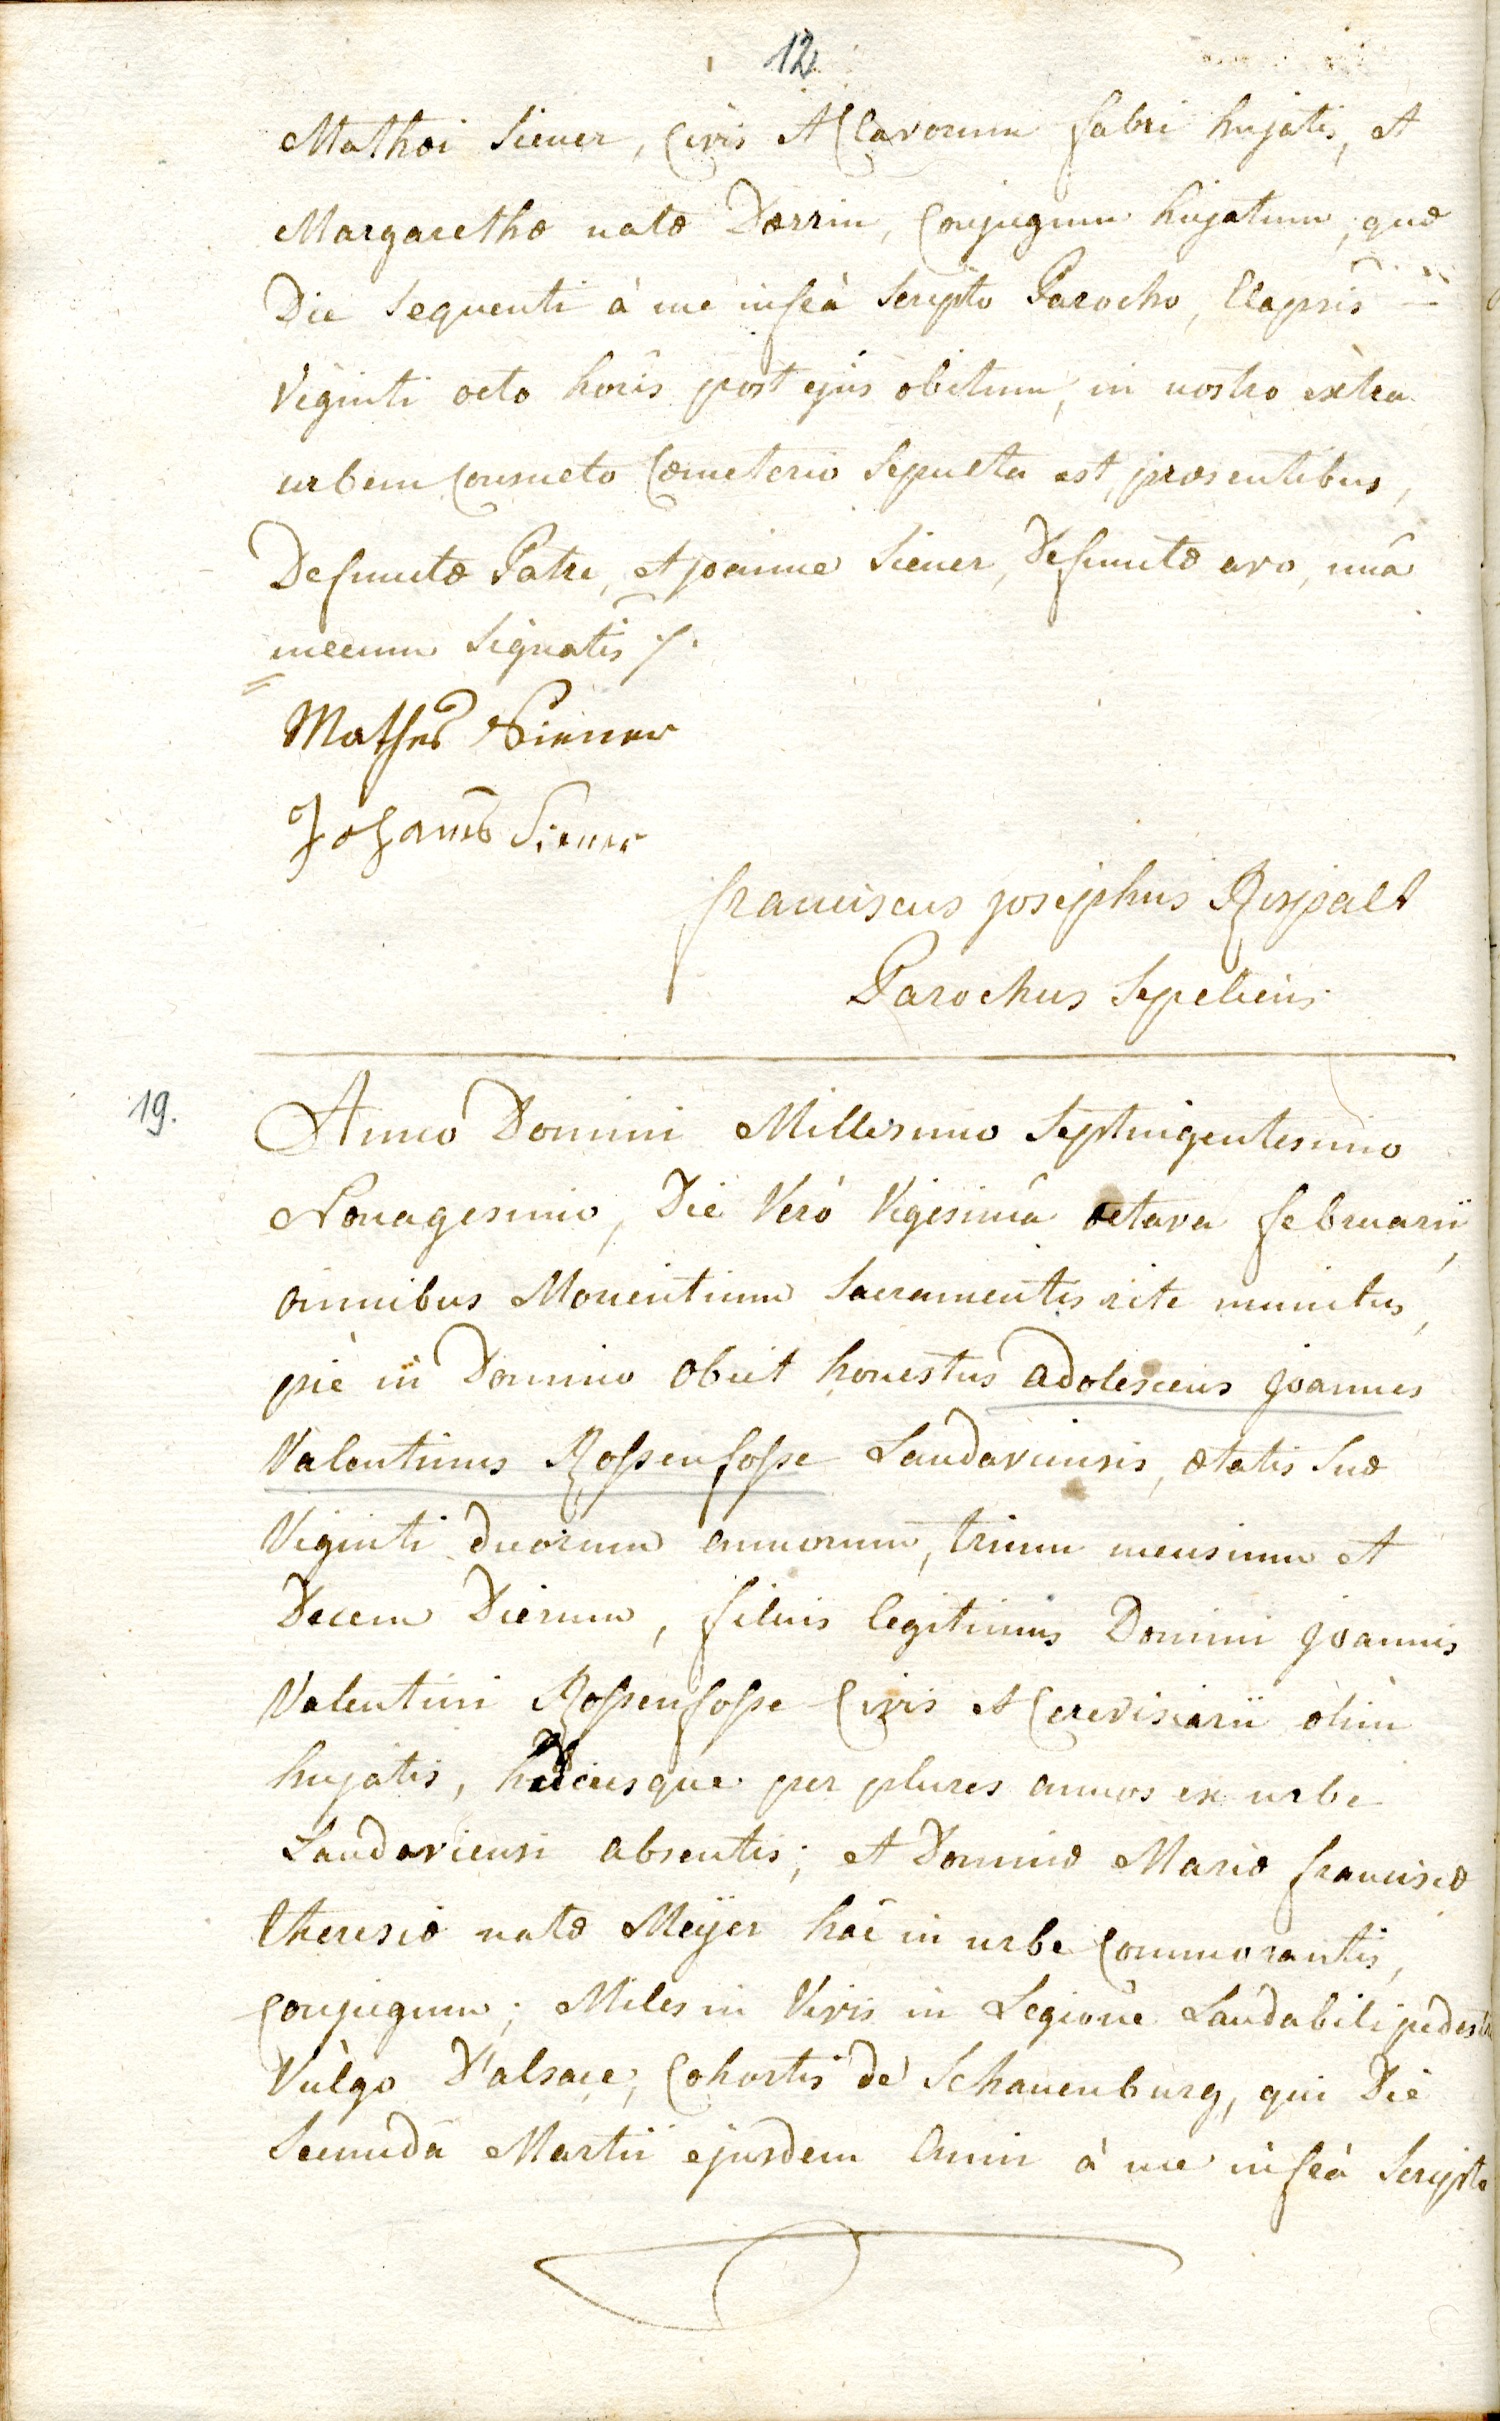 12
Mathæi Siener, Civis et Clavorum fabri hujatis, et
Margarethæ natæ Dœrrin, Conjugum hujatum, quæ
Die Sequenti à me infrà Scripto Parocho, Elapsis
Viginti octo horis post ejus obitum, in nostro extra
urbem Consueto Cœmeterio Sepulta est, præsentibus,
Defunctæ Patre, et joanne Siener, Defunctæ avo, unâ
mecum Signatis
Mathes Siener
Johanes Siener
franciscus josephus
Parochus Sepeliens.
19.
Anno Domini Millesimo Septingentesimo
Nonagesimo, Die Verò Vigesimâ octava februarii,
omnibus Morientium Sacramentis rite munitus,
piè in Domino obiit honestus adolescens joannes
Valentinus Roßenfoße Landaviensis, ætatis Suæ
Viginti duorum annorum, trium mensium et
Decem Dierum, filius legitimus Domini joannis
Valentini Roßenfoße Civis et Cerevisiarii olim
hujatis, hucusque per plures annos ex urbe
Landaviensi absentis; et Dominæ Mariæ franciscæ
theresiæ natæ Meÿer hâc in urbe Commorantis,
Conjugum; Miles in Vivis in Legione Laudabili pedestri
Vulgo D'alsace, Cohortis de Schauenburg, qui Die
Secundâ Martii ejusdem Anni à me infrà Scripto